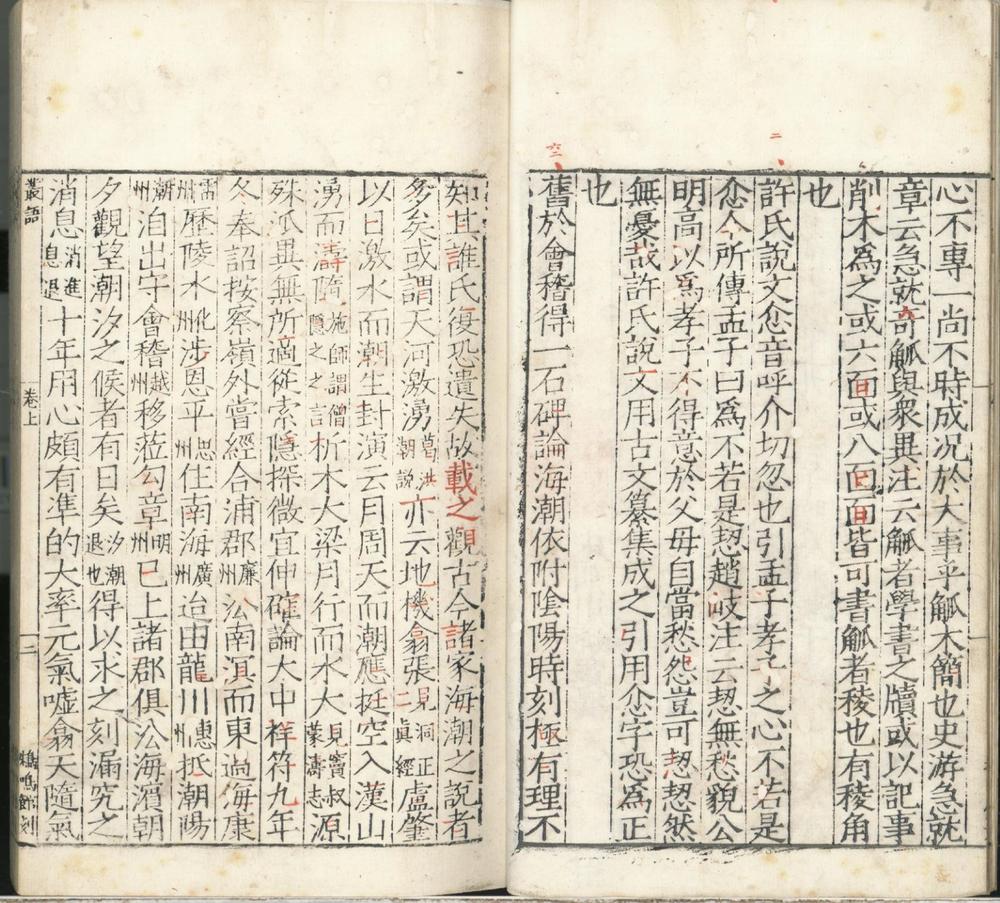 二
六二
心不專一尚不時成况於大事乎觚木簡也史游急就
章云急就奇觚與衆異注云觚者學書之牘或以記事
削木爲之或六面或八面面皆可書觚者稜也有稜角
也
許氏說文忿音呼介切忽也引孟子孝子之心不若是
忿今所傳孟子曰爲不若是恝趙岐注云恝無愁貌公
明高以爲孝子不得意於父母自當愁怨豈可恝恝然
無憂哉許氏說文用古文纂集成之引用忿字恐爲正
也
舊於會稽得一石碑論海潮依附陰陽時刻極有理不
知其誰氏復恐遺失故載之觀古今諸家海潮之說者
多矣或謂天河激湧葛洪潮說亦云地機翕張見洞正二眞經盧肇
以日激水而潮生封演云月周天而潮應挺空入漢山
湧而濤隨施師謂僧隱之之言析木大梁月行而水大見竇叔蒙濤志源
殊派異無所適從索隱探微宜伸確論大中祥符九年
冬奉詔按察嶺外嘗經合浦郡廉州沿南溟而東過海康
雷州歷陵水化州涉恩平恩州住南海廣州迨由龍川惠州抵潮陽
潮州洎出守會稽越州移蒞勾章明州已上諸郡俱沿海濱朝
夕觀望潮汐之候者有日矣汐潮退也得以求之刻漏究之
消息消進息退十年用心頗有準的大率元氣噓翕天隨氣
叢語
卷上
二
鴳鳴館刻